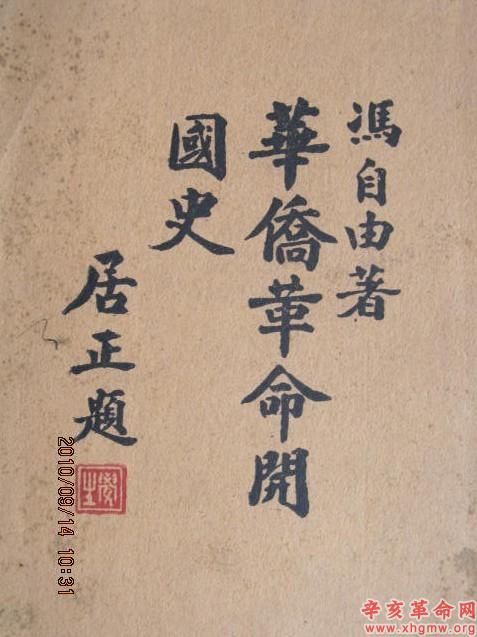 馮自由著
華僑革命開
國史
居正題
覺生
2010/09/14 10:31
辛亥革命网
www.xhgmw.org